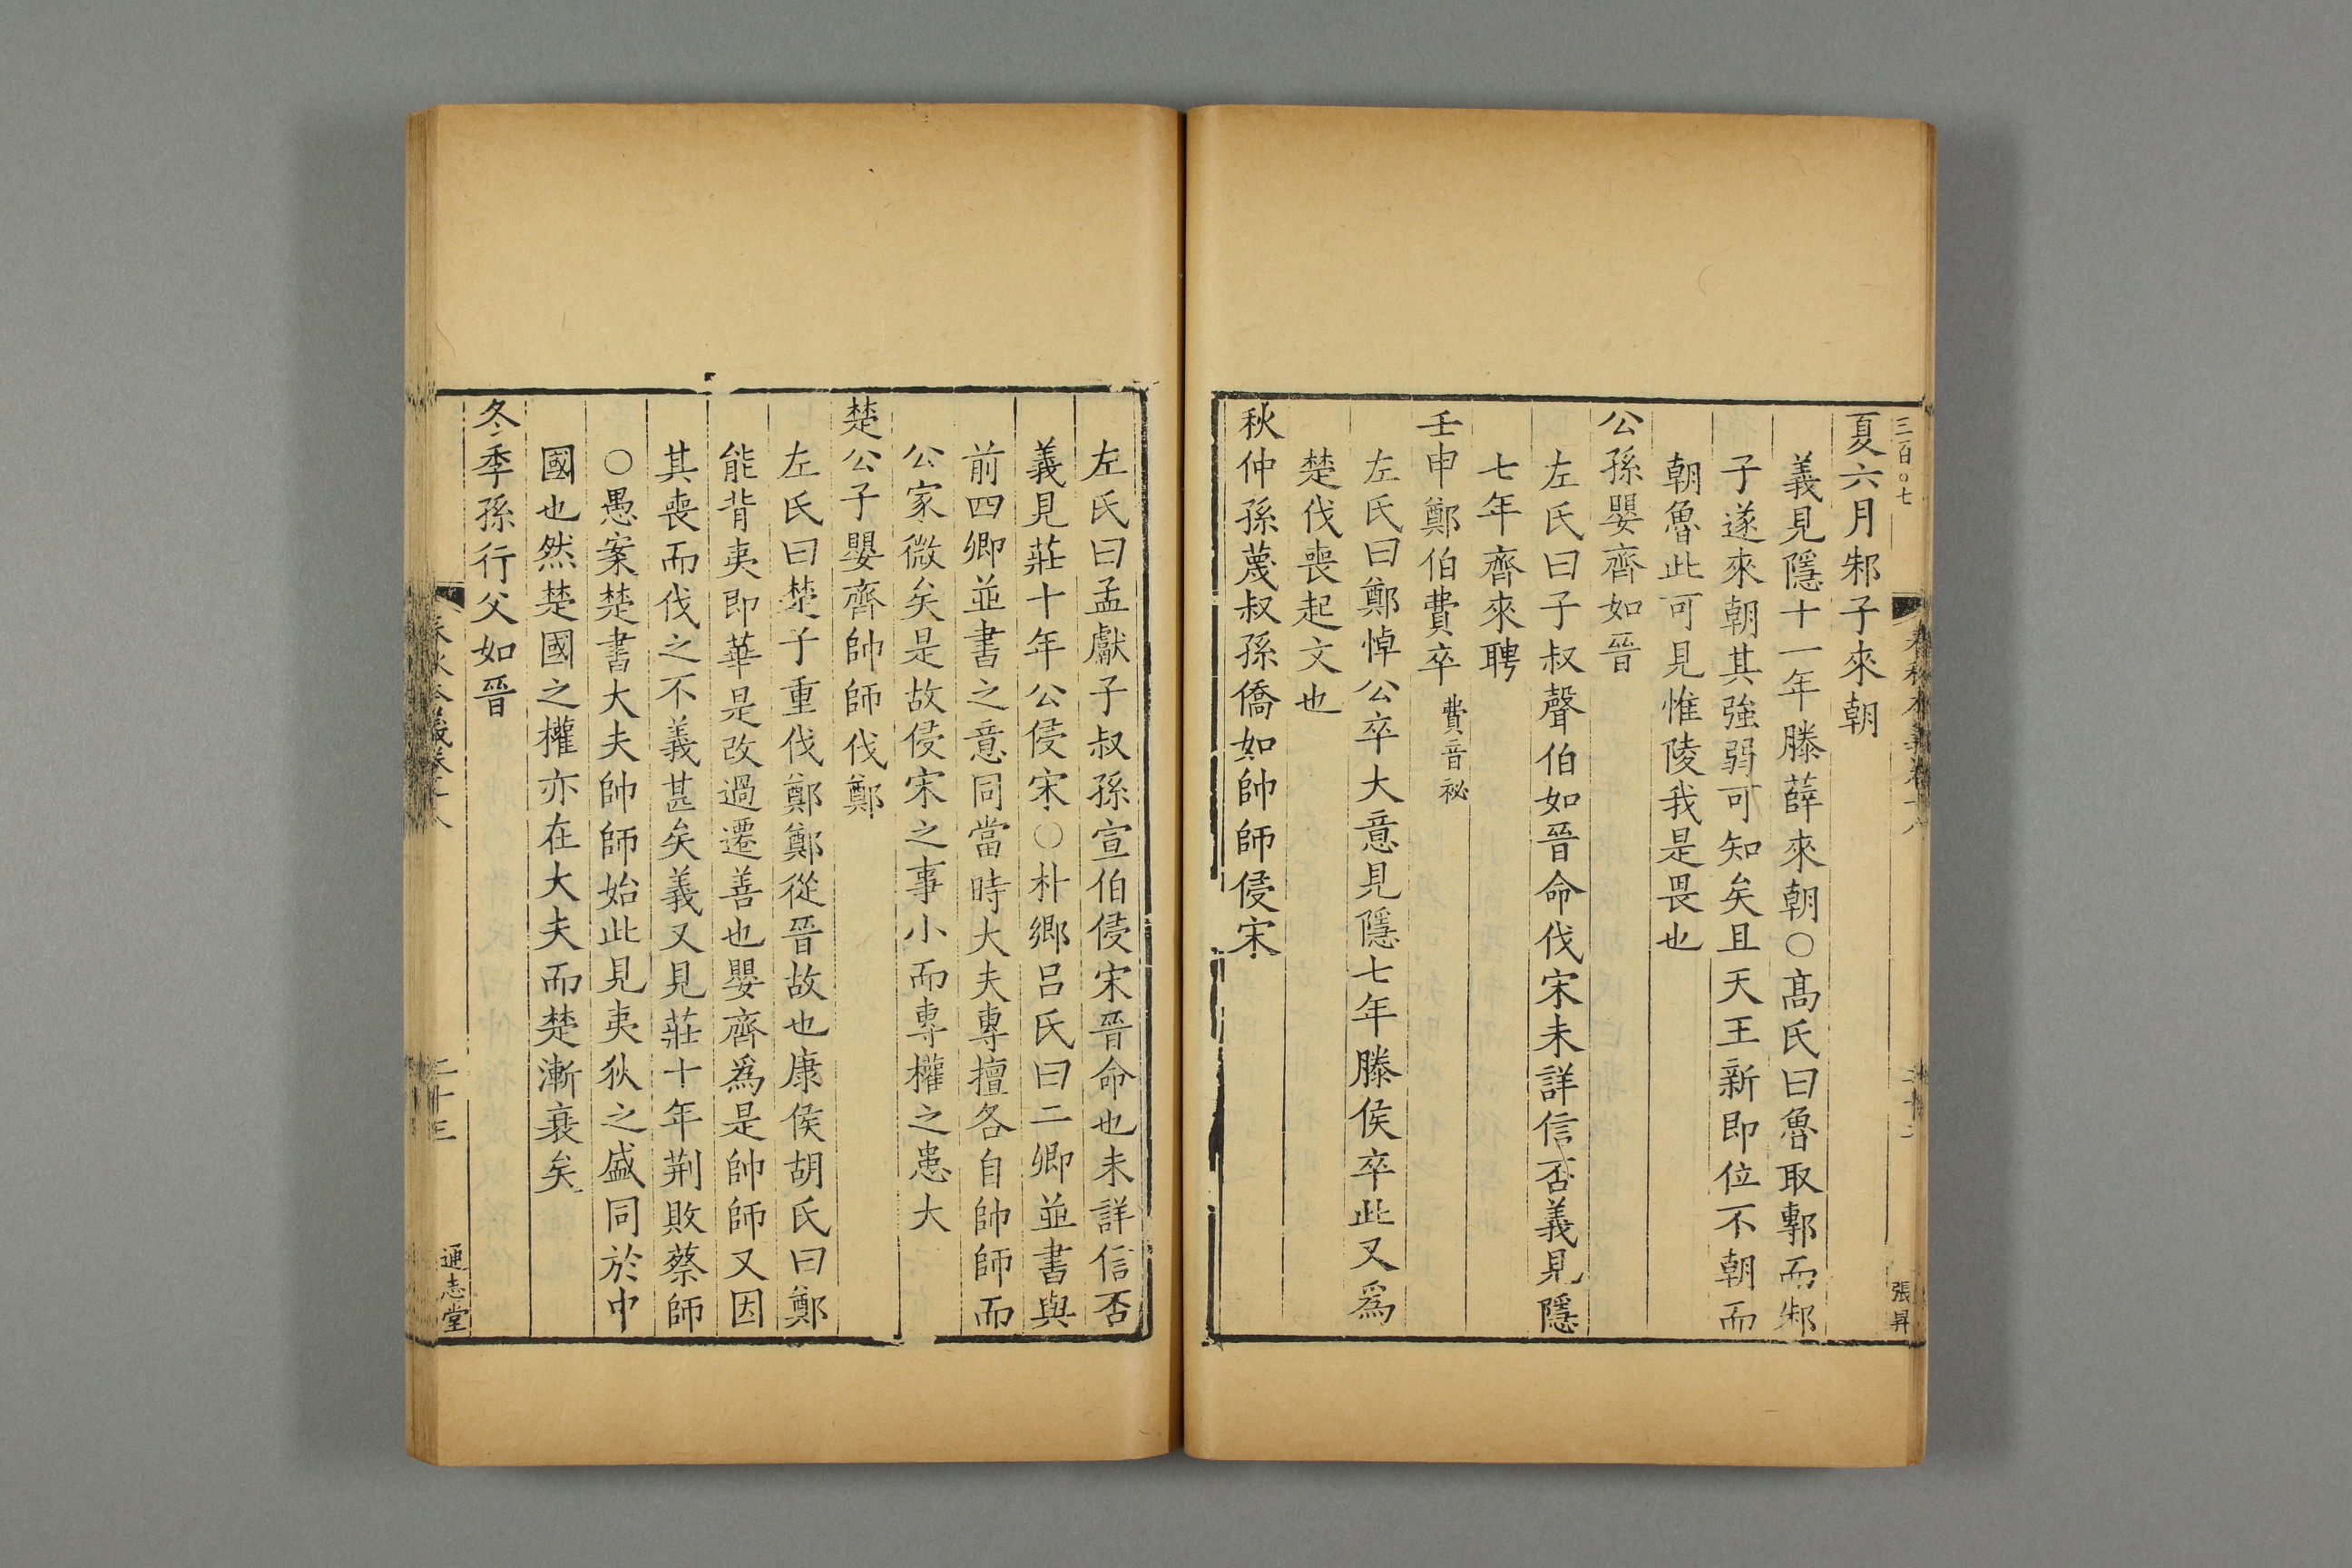 三百〇七
夏六月邾子來朝
義見隱十一年滕薛來朝○高氏曰魯取鄟而邾
子遂來朝其強弱可知矣且天王新即位不朝而
朝魯此可見惟陵我是畏也
公孫嬰齊如晉
左氏曰子叔聲伯如晉命伐宋未詳信否義見隱
七年齊來聘
壬申鄭伯費卒費音祕
左氏曰鄭悼公卒大意見隱七年滕侯卒此又爲
楚伐喪起文也
秋仲孫蔑叔孫僑如帥師侵宋
張昇
左氏曰孟獻子叔孫宣伯侵宋晉命也未詳信否
義見莊十年公侵宋○朴鄉呂氏曰二卿並書與
前四卿並書之意同當時大夫專擅各自帥師而
公家微矣是故侵宋之事小而專權之患大
楚公子嬰齊帥師伐鄭
左氏曰楚子重伐鄭鄭從晉故也康侯胡氏曰鄭
能背夷即華是改過遷善也嬰齊爲是帥師又因
其喪而伐之不義甚矣義又見莊十年荆敗蔡師
○愚案楚書大夫帥師始此見夷狄之盛同於中
國也然楚國之權亦在大夫而楚漸衰矣
冬季孫行父如晉
二十三
通志堂